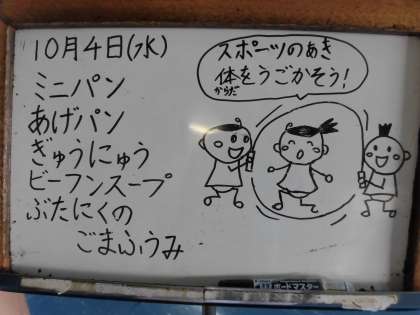 10月4日(水)
ミニパン
あげパン
ぎゅうにゅう
ビーフンスープ
ぶたにくの
ごまふうみ
スポーツのあき
体をうごかそう!
からだ
ボードマスター